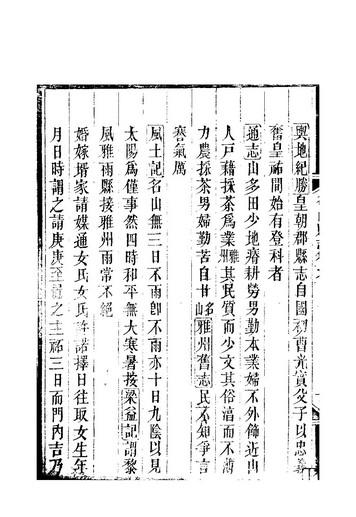 輿地紀勝皇朝郡縣志自國初曹光實父子以忠義
奮皇祐間始有登科者
通志山多田少地瘠耕勞男勤本業婦不外飾近山
人戶藉採茶為業雅其民質而少文其俗涽而不薄
力農採茶男婦勤苦自甘雅州舊志民不知爭言
寡氣厲
風土記名山無三日不雨卽不雨亦十日九陰以見
太陽為僅事然四時和平無大寒暑接梁益記謂黎
風雅雨縣接雅州雨常不絕
婚嫁壻家請媒通女氏女氏許諾擇日往取女生年
月日時謂之請庚庚至之主祏三日而門內吉乃